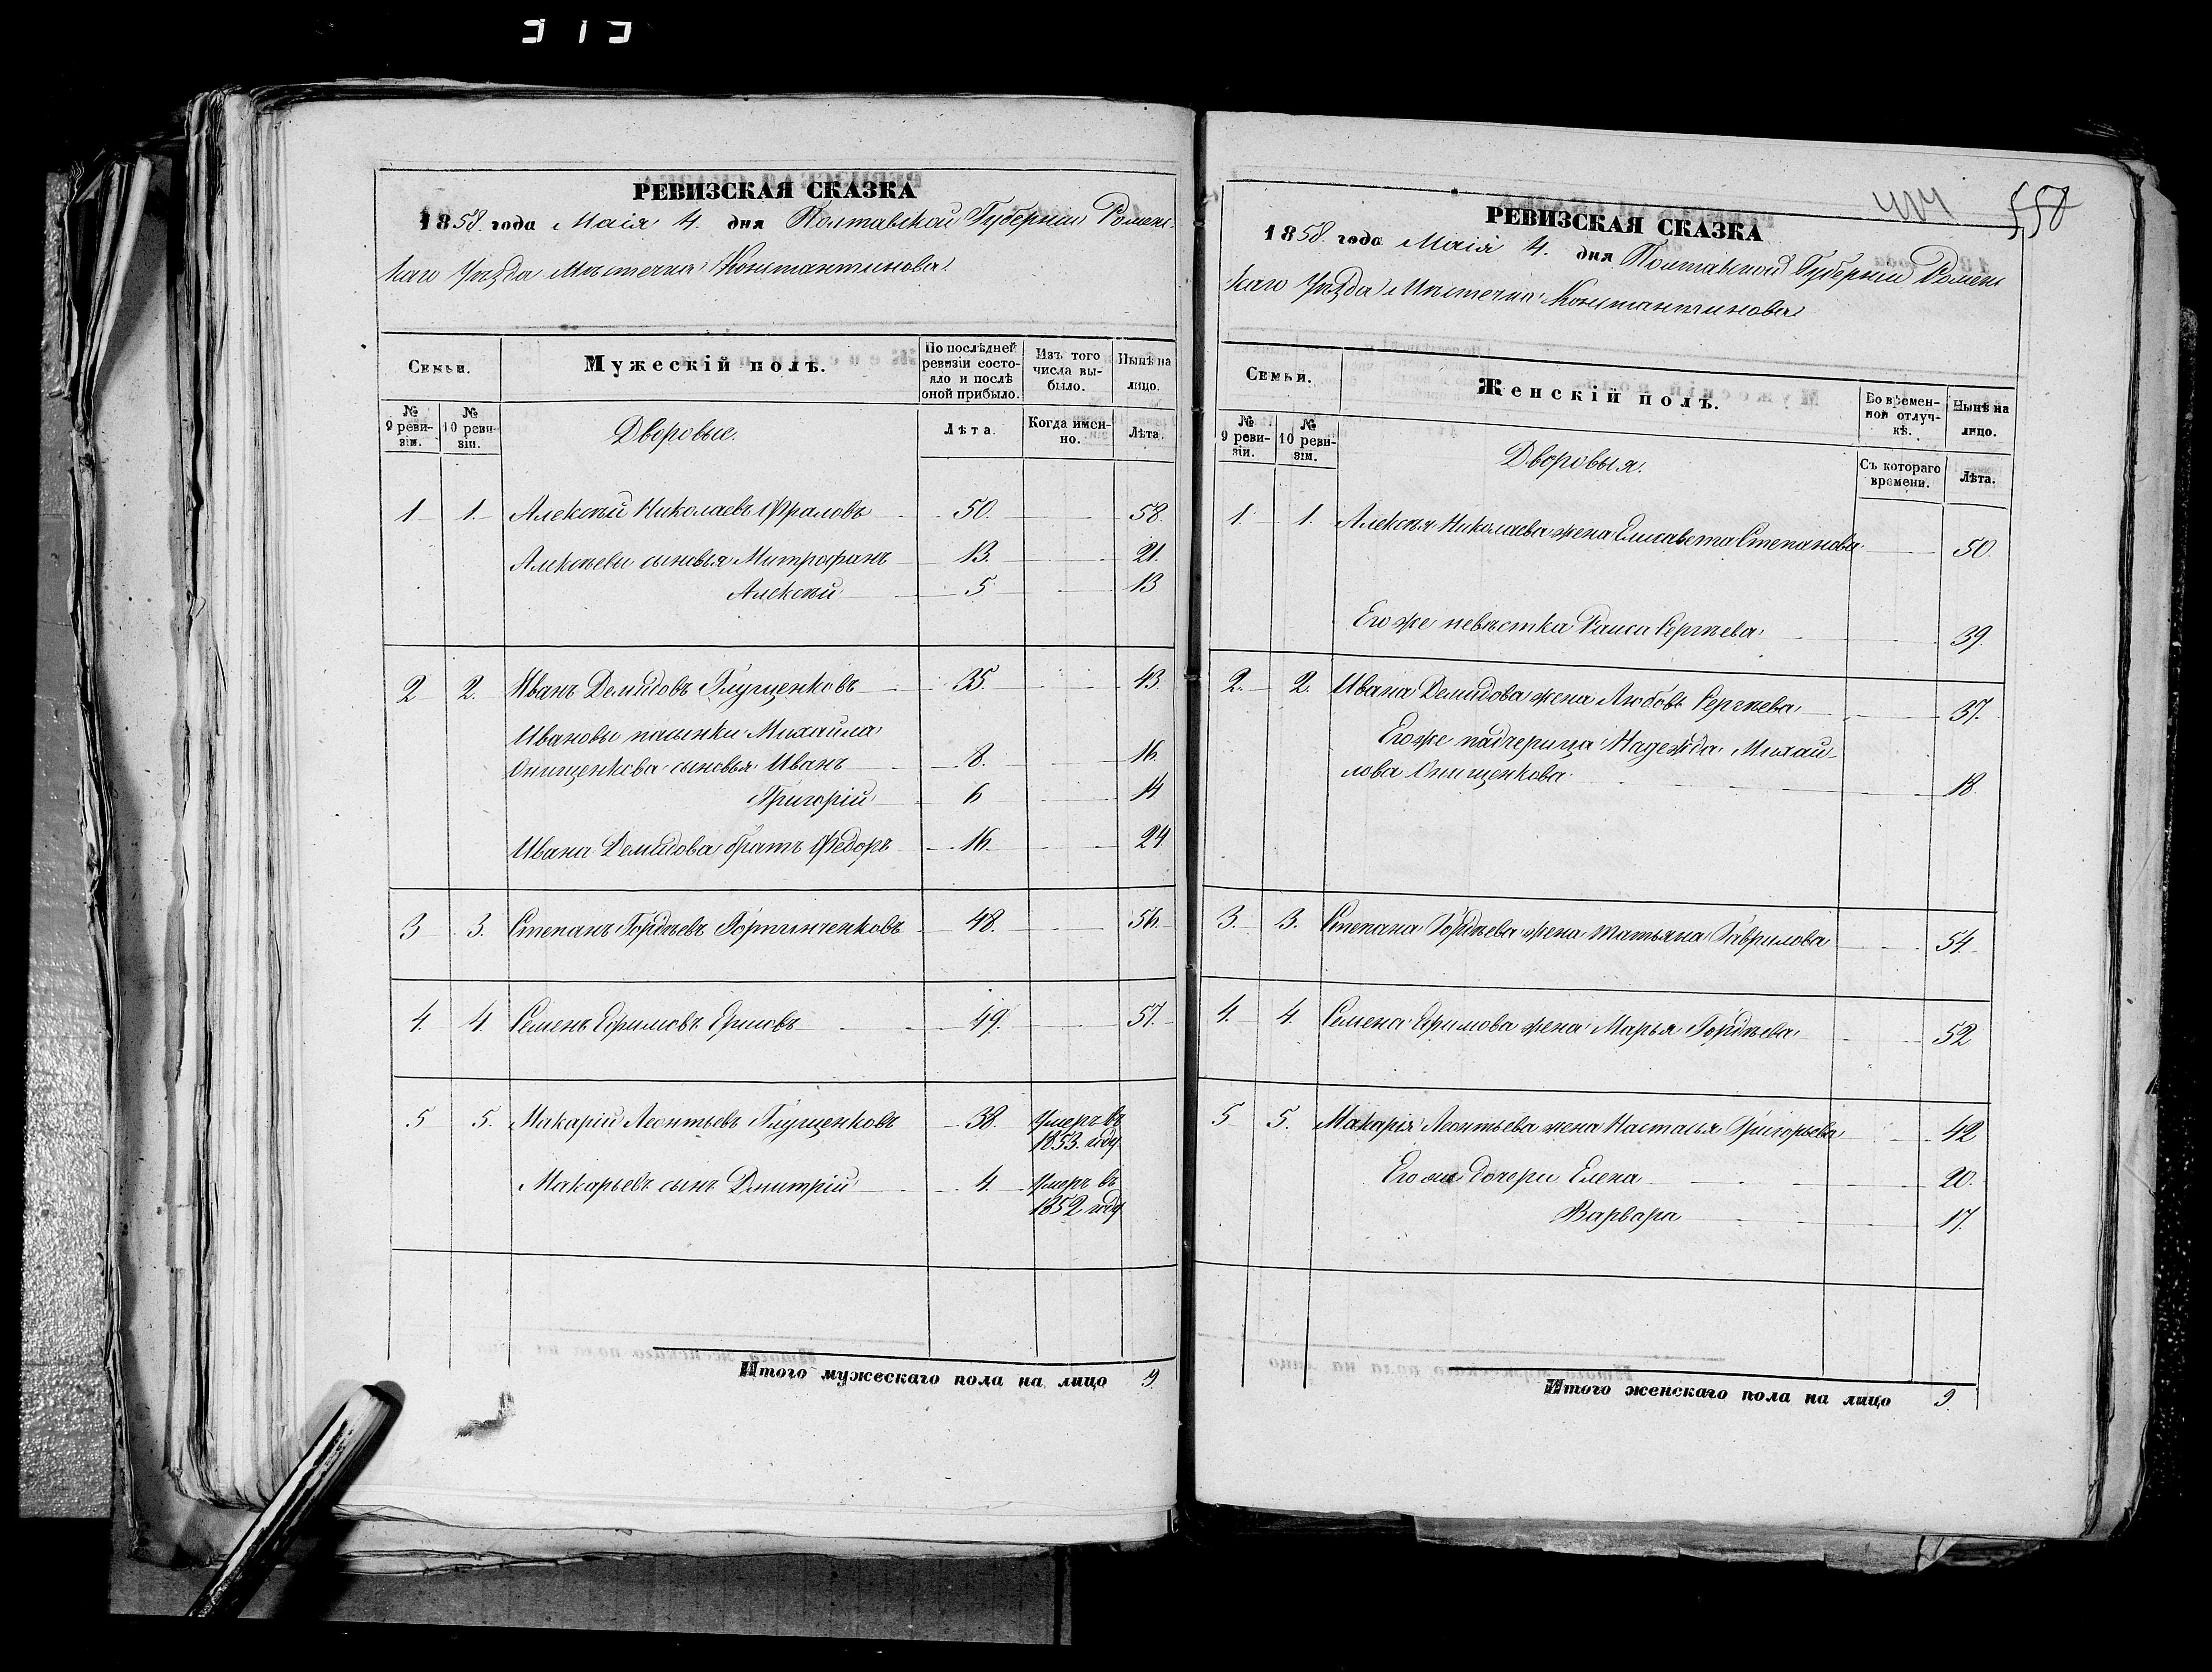 РЕВИЗСКАЯ СКАЗКА
1858 года Маія 4. дня Полтавской Губерніи Ромен-
каго Уѣзда Мѣстечка Константинова
Семьи.
Мужескій полъ.
По послѣдней ревизіи состояло и послѣ оной прибыло.
Изъ того числа выбыло.
Нынѣ на лицо.
№ 9 ревизіи.
№ 10 ревизіи.
Дворовые.
Лѣта.
Когда именно.
Лѣта.
1 1. Алексѣй Николаевъ Фраловъ 50. 58.
Алексѣевы сыновья Митрофанъ 13. 21.
Алексѣй 5 13
2 2. Иванъ Демидовъ Глущенковъ 35. 43.
Ивановы пасынки Михаила
Онищенкова сыновья Иванъ 8. 16.
Григорій 6 14
Ивана Демидова братъ Федоръ 16. 24
3 3. Степанъ Гордѣевъ 48. 56.
4. 4 Семенъ Ефимовъ 49. 57.
5 5. Макарій Леонтьевъ Глущенковъ 38. Умеръ въ
1853. году
Макарьевъ сынъ Дмитрій 4. Умеръ въ
1852 году
Итого мужескаго пола на лицо 9.
558
РЕВИЗСКАЯ СКАЗКА
1858. года Маія 4. дня Полтавской Губерніи Ромен
каго Уѣзда Мѣстечка Константинова
Семьи.
Женскій полъ.
Во временной отлучкѣ.
Нынѣ на лицо.
№ 9 ревизіи.
№ 10 ревизіи.
Дворовыя.
Съ котораго времени.
Лѣта.
1. 1. Алексѣя Николаева жена Елисавета Степанова 50.
Его же невѣстка Раиса Сергѣева 39.
2. 2. Ивана Демидова жена Любовь Сергѣева 37.
Его же падчерица Надежда Михай-
лова Онищенкова 18.
3. 3. Степана Гордѣева жена Татьяна Гаврилова 54.
4. 4. Семена Ефимова жена Марья Гордѣева 52
5 5. Макарія Леонтьева жена Настасья Григорьева 42
Его же дочери Елена 20.
Варвара 17.
Итого женскаго пола на лицо 9.